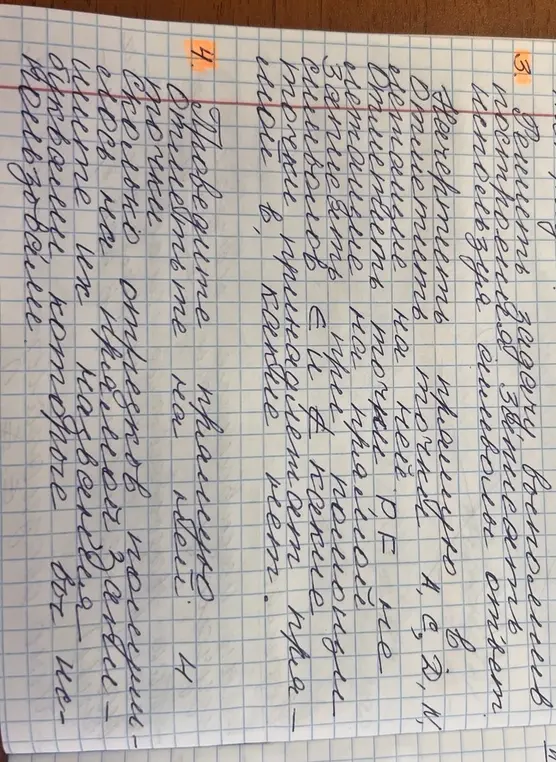 3.
Решить задачу выполнив
построения записать
используя символы ответ.
Начертить прямую в
отметить точки A, C, D, N,
лежащие на ней
Отметить точки P F не
лежащие на прямой
Записать при помощи
символов ∈ и ∉ какие
точки принадлежат пря-
мой в, какие нет.
4.
Проведите прямую
отметьте на ней 4
точки
Сколько отрезков получи-
лось на прямой? Запи-
шите их названия
буквами которые вы ис-
пользовали.